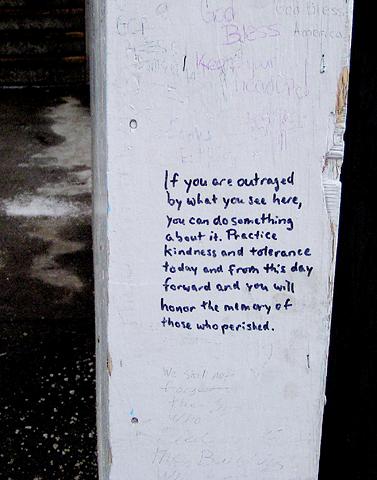 God
Bless
God Bless
America
Keep your
head up
If you are outraged
by what you see here,
you can do something
about it. Practice
kindness and tolerance
today and from this day
forward and you will
honor the memory of
those who perished.
We shall not